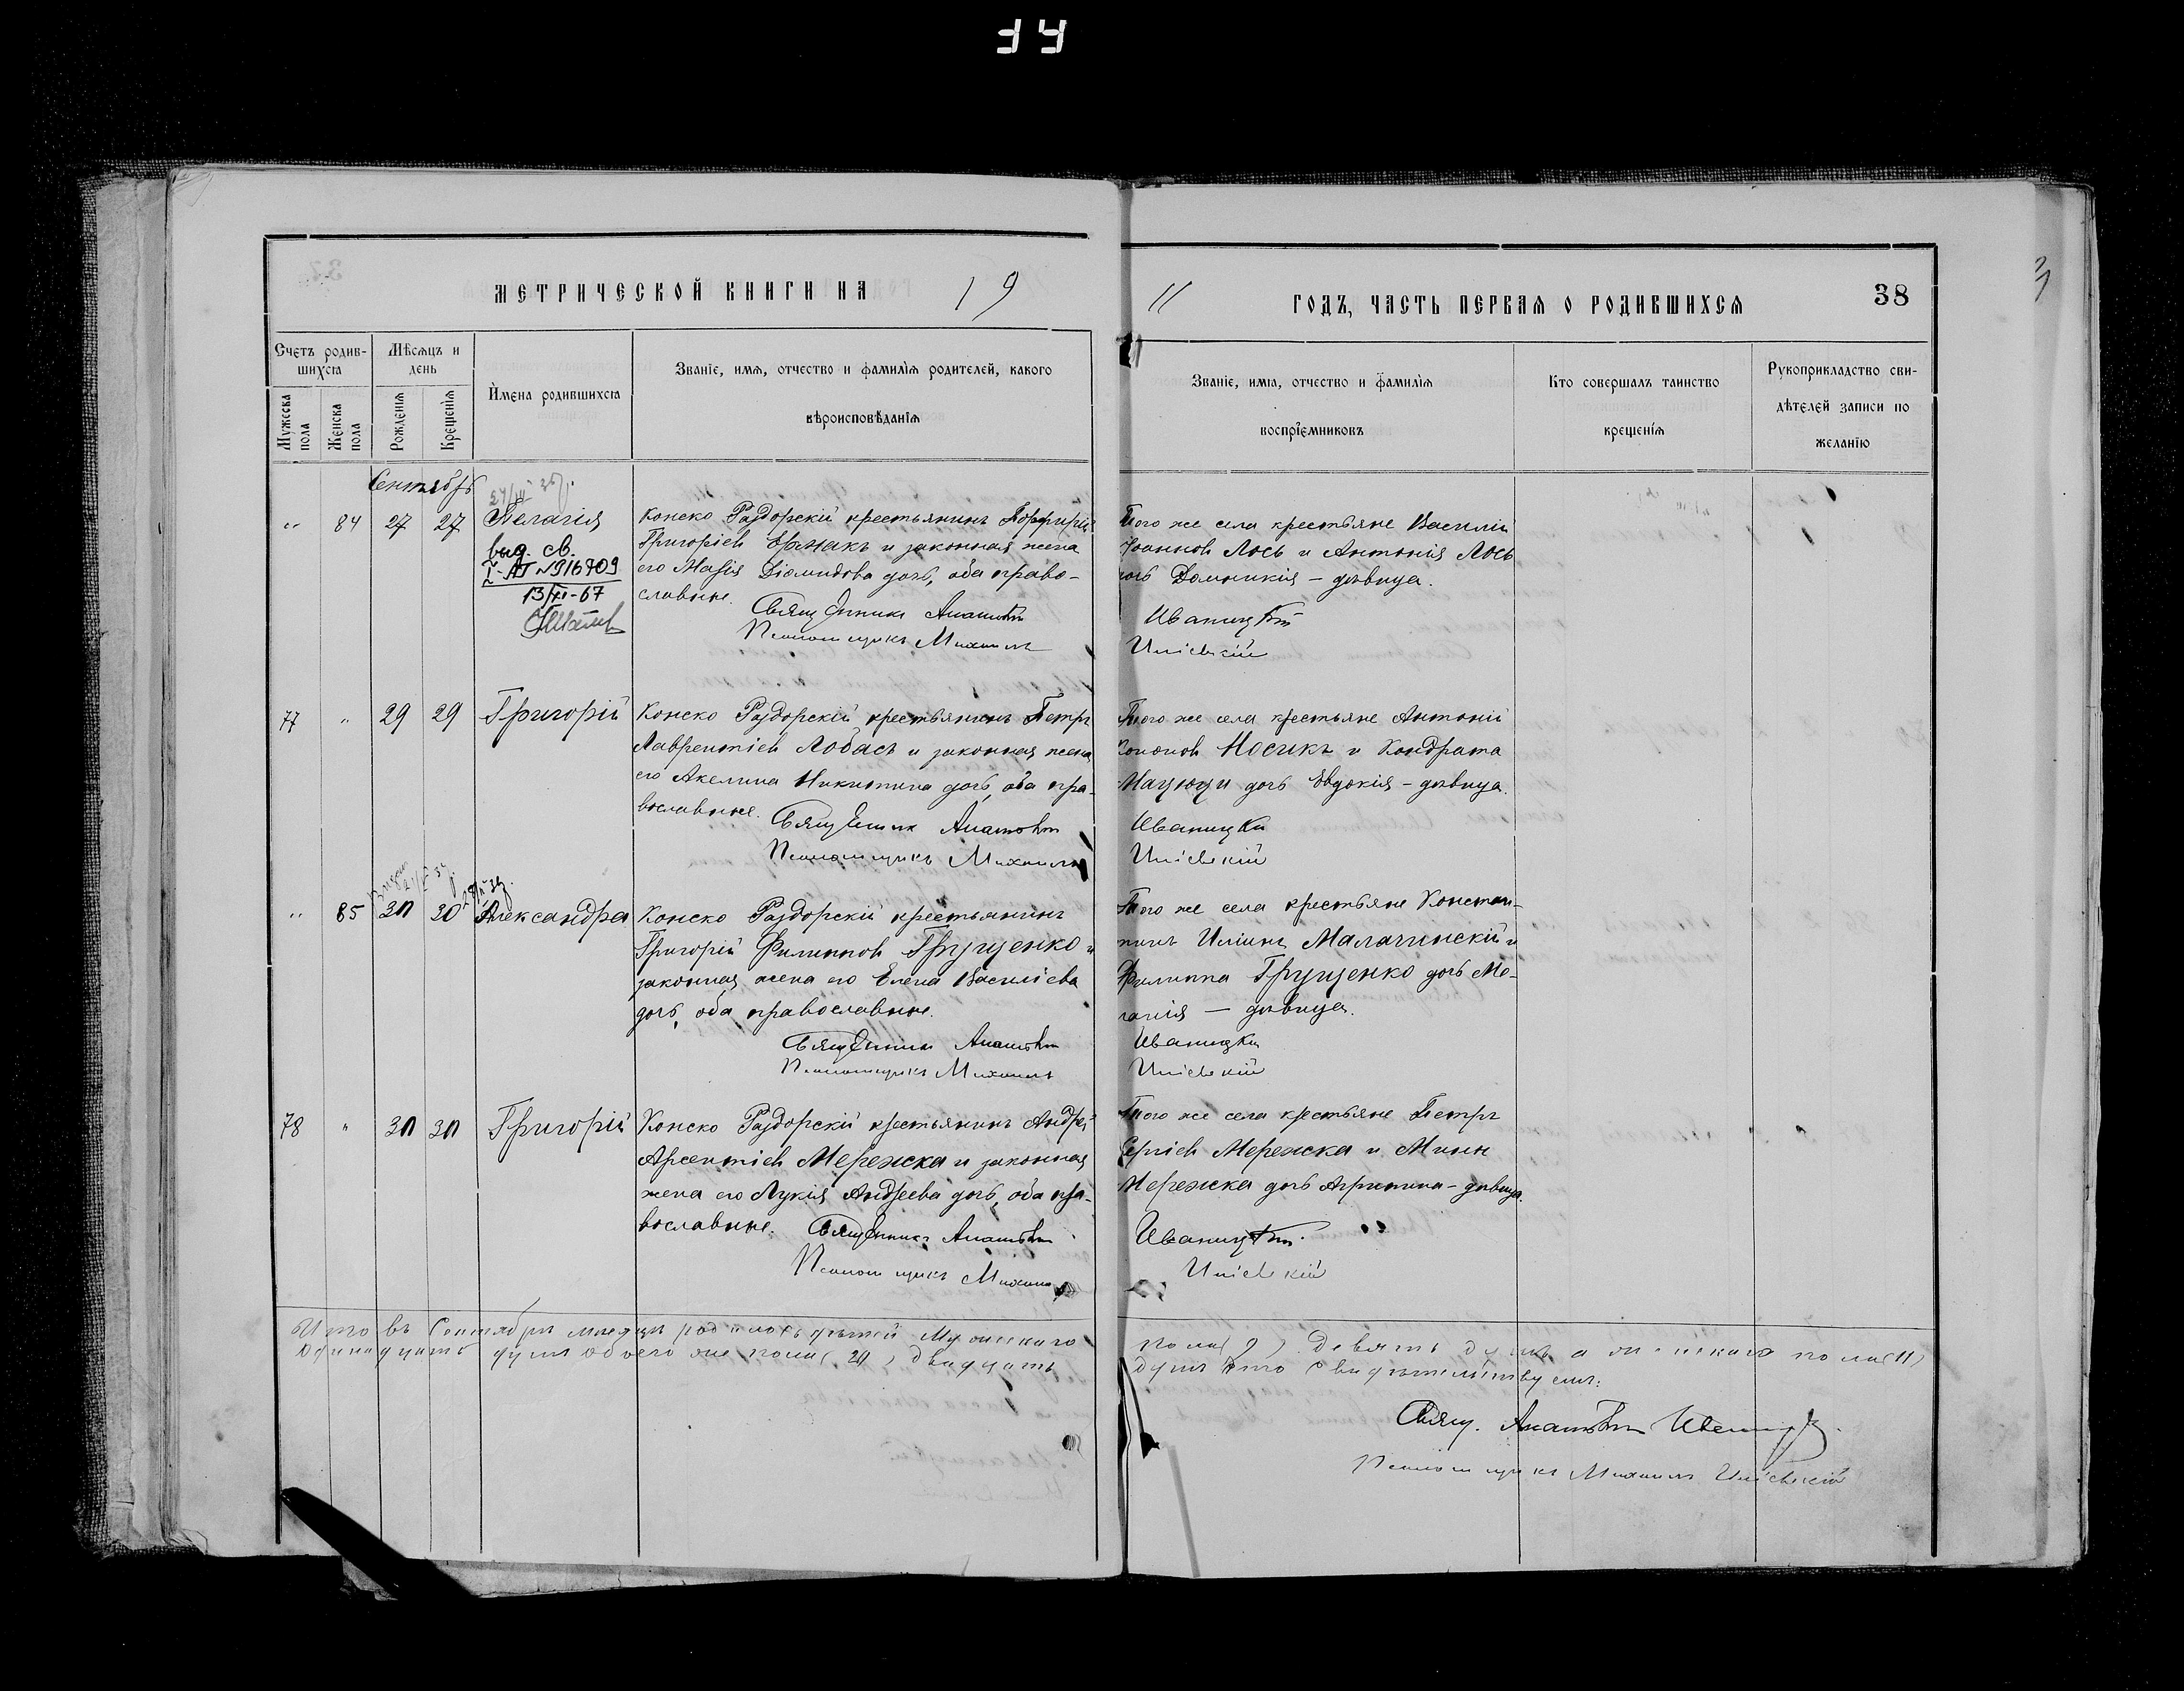 МЕТРИЧЕСКОЙ КНИГИ НА 19
11 ГОДЪ, ЧАСТЬ ПЕРВАЯ О РОДИВШИХСЯ
38
Счетъ родив-
шихся
Мужеска
пола
Женска
пола
Мѣсяцъ и
день
Рожденія
Крещенія
Имена родившихся
Званіе, имя, отчество и фамилія родителей, какого
вѣроисповѣданія
Званіе, имя, отчество и фамилія
воспріемниковъ
Кто совершалъ таинство
крещенія
Рукоприкладство сви-
дѣтелей записи по
желанію
Сентябрь
" 84 27 27 Пелагія
выд. св.
I-АП №916709
13/XI-67
Конско Раздорскій крестьянинъ Порфирій
Григоріевъ Ермакъ и законная жена
его Марія Діомидова дочь, оба право-
славные.
Священникъ
Псаломщикъ Михаилъ
Того же села крестьяне Василій
Іоанновъ Лось и Антонія Лось
дочь Домникія – дѣвица.
Иваницкій
77 " 29 29 Григорій
Конско Раздорскій крестьянинъ Петръ
Лаврентіевъ Лобасъ и законная жена
его Акелина Никитина дочь, оба пра-
вославные.
Священникъ
Псаломщикъ Михаилъ
Того же села крестьяне Антоній
Носикъ и Кондрата
Мацюци дочь Евдокія – дѣвица.
Иваницкій
" 85 30 30 Александра
Конско Раздорскій крестьянинъ
Григорій Филипповъ Грущенко и
законная жена его Елена Василіева
дочь, оба православные.
Священникъ
Псаломщикъ Михаилъ
Того же села крестьяне Констан-
тинъ Иліинъ Малачинскій и
Филиппа Грущенко дочь Ме-
ланія — дѣвица.
Иваницкій
78 " 30 30 Григорій
Конско Раздорскій крестьянинъ Андрей
Арсентіевъ Мережка и законная
жена его Лукія Андреева дочь, оба пра-
вославные.
Священникъ
Псаломщикъ Михаилъ
Того же села крестьяне Петръ
Сергіевъ Мережка и Мины
Мережка дочь Агрипина – дѣвица.
Иваницкій.
Итого въ Сентябрѣ мѣсяцѣ родилось дѣтей Мужескаго
пола (9) девять душъ а женскаго пола (11)
одинадцать душъ обоего же пола (20) двадцать
душъ что свидѣтельствуемъ:
Свящ.
Псаломщикъ Михаилъ